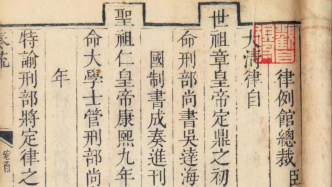 律例館總裁臣
大清律自
世祖章皇帝定鼎之初
命刑部尚書吳達海
國制書成奏進刊
聖祖仁皇帝康熙九年
命大學士管刑部尚
年
特諭刑部將定律之
奏疏